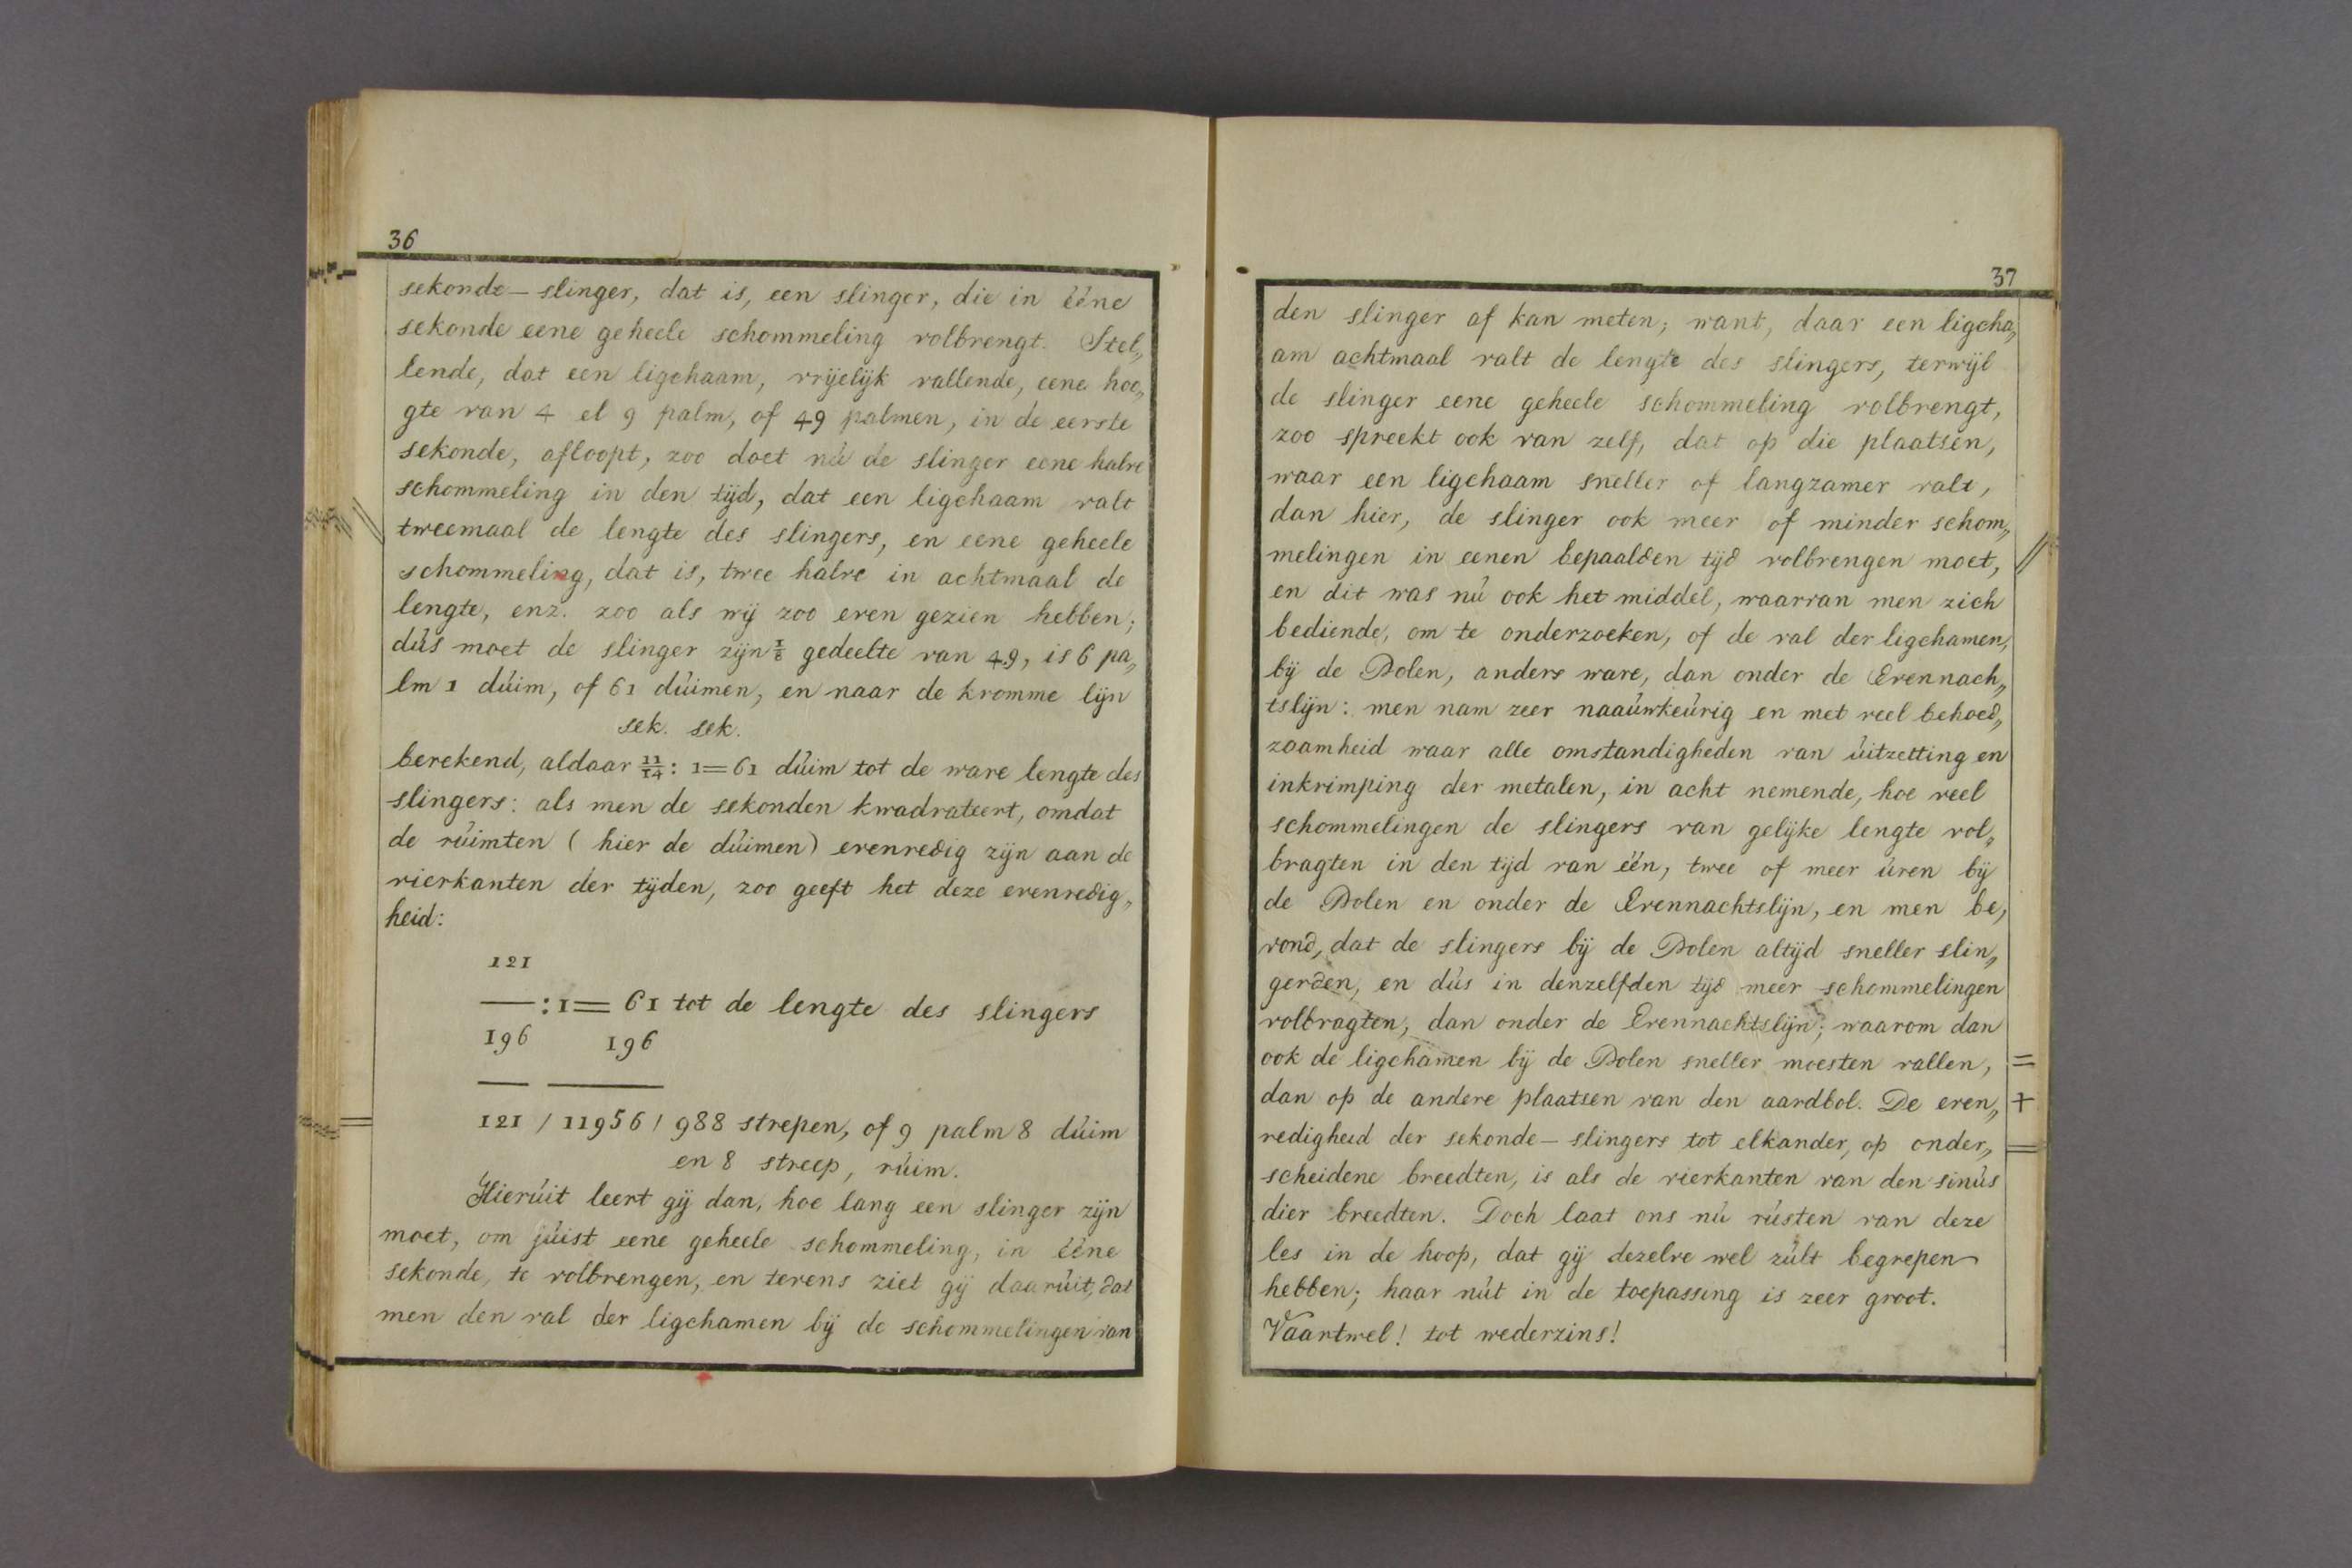 36
sekonde — slinger, dat is, een slinger, die in ééne
sekonde eene geheele schommeling volbrengt. Stel„
lende, dat een ligchaam, vrijelijk vallende, eene hoo„
gte van 4 el 9 palm, of 49 palmen, in de eerste
sekonde, afloopt, zoo doet nú de slinger eene halve
schommeling in den tijd, dat een ligchaam valt
tweemaal de lengte des slingers, en eene geheele
schommeling, dat is, twee halve in achtmaal de
lengte, enz. zoo als wij zoo even gezien hebben;
dús moet de slinger zijn 1/8 gedeelte van 49, is 6 pa„
lm 1 dúim, of 61 dúimen, en naar de kromme lijn
sek. sek.
berekend, aldaar 11/14 : 1 = 61 dúim tot de ware lengte des
slingers: als men de sekonden kwadrateert, omdat
de rúimten ( hier de dúimen ) evenredig zijn aan de
vierkanten der tijden, zoo geeft het deze evenredig„
heid:
121
— : 1 = 61 tot de lengte des slingers
196 196
121 / 11956 / 988 strepen, of 9 palm 8 dúim
en 8 streep, rúim.
Hierúit leert gij dan, hoe lang een slinger zijn
moet, om júist eene geheele schommeling, in ééne
sekonde, te volbrengen, en tevens ziet gij daarúit, dat
men den val der ligchamen bij de schommelingen van
37
den slinger af kan meten; want, daar een ligcha„
am achtmaal valt de lengte des slingers, terwijl
de slinger eene geheele schommeling volbrengt,
zoo spreekt ook van zelf, dat op die plaatsen,
waar een ligchaam sneller of langzamer valt,
dan hier, de slinger ook meer of minder schom„
melingen in eenen bepaalden tijd volbrengen moet,
en dit was nú ook het middel, waarvan men zich
bediende, om te onderzoeken, of de val der ligchamen,
bij de Polen, anders ware, dan onder de Evennach„
tslijn: men nam zeer naaúwkeúrig en met veel behoed„
zaamheid waar alle omstandigheden van úitzetting en
inkrimping der metalen, in acht nemende, hoe veel
schommelingen de slingers van gelijke lengte vol„
bragten in den tijd van één, twee of meer úren bij
de Polen en onder de Evennachtslijn, en men be„
vond, dat de slingers bij de Polen altijd sneller slin„
gerden, en dús in denzelfden tijd meer schommelingen
volbragten, dan onder de Evennachtslijn; waarom dan
ook de ligchamen bij de Polen sneller moesten vallen, =
dan op de andere plaatsen van den aardbol. De even„ +
redigheid der sekonde — slingers tot elkander, op onder„
scheidene breedten, is als de vierkanten van den sinús
dier breedten. Doch laat ons nú rústen van deze
les in de hoop, dat gij dezelve wel zúlt begrepen
hebben; haar nút in de toepassing is zeer groot.
Vaartwel! tot wederzins!